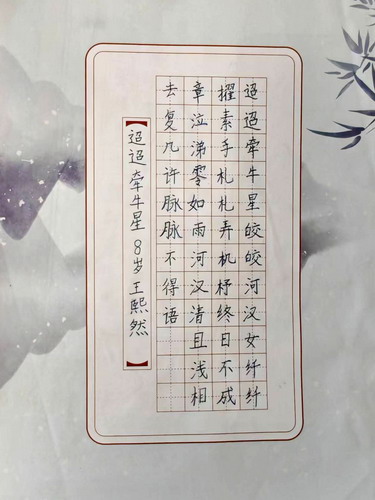 迢迢牵牛星皎皎河汉女纤纤
擢素手札札弄机杼终日不成
章泣涕零如雨河汉清且浅相
去复几许脉脉不得语
【迢迢牵牛星 8岁王熙然】